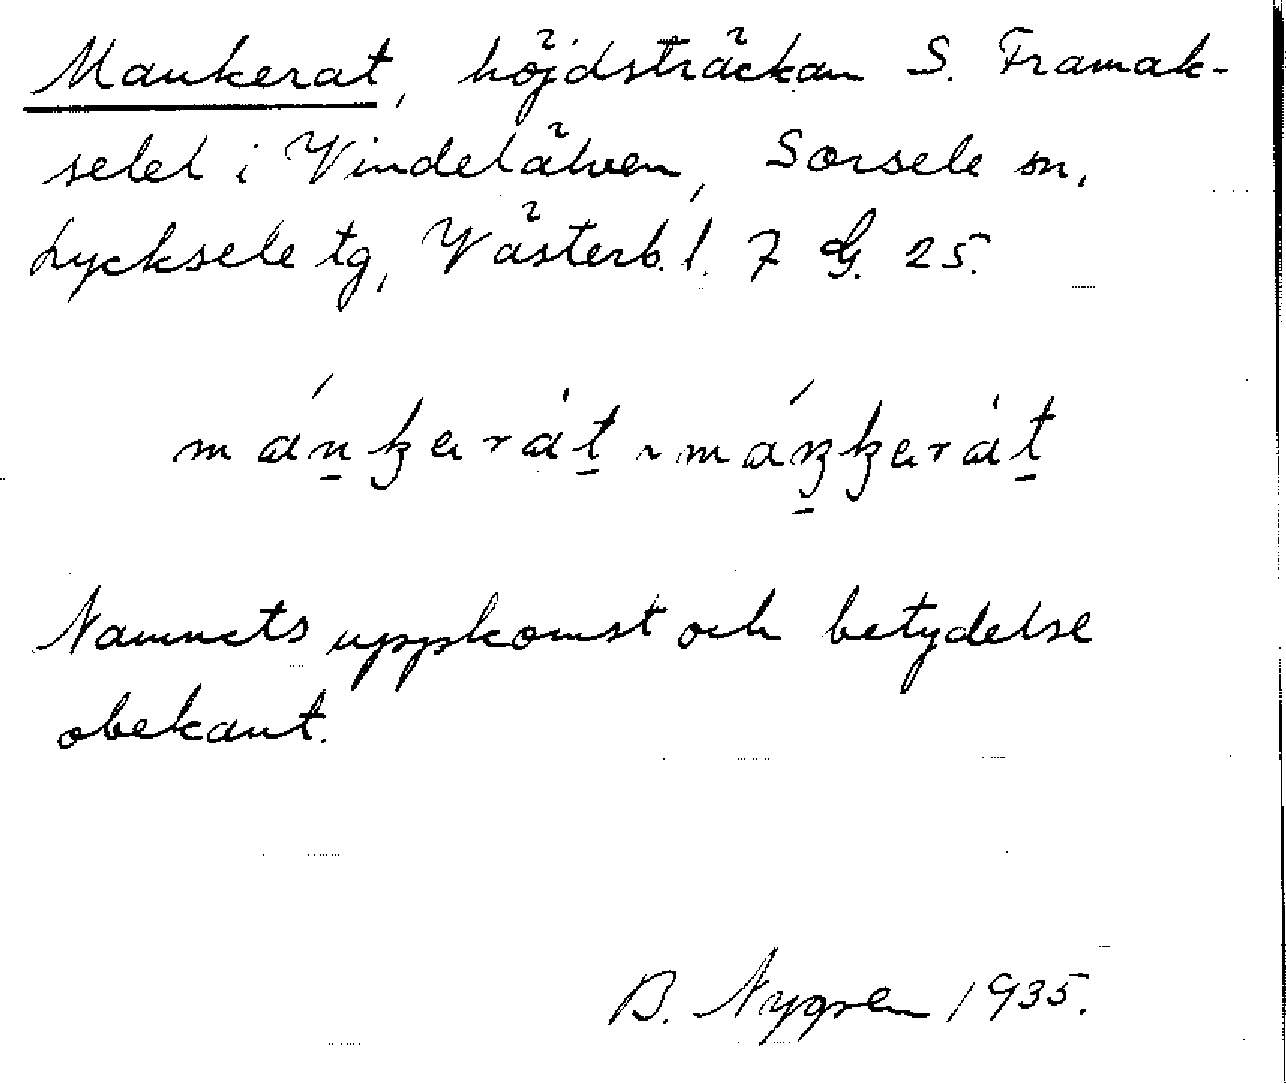 Mankerat, höjdsträckan S. Framak-
selet i Vindelälven, Sorsele sn,
Lycksele tg, Västerb. l. 7 G. 25.
Namnets uppkomst och betydelse
obekant.
B. Nygren 1935.